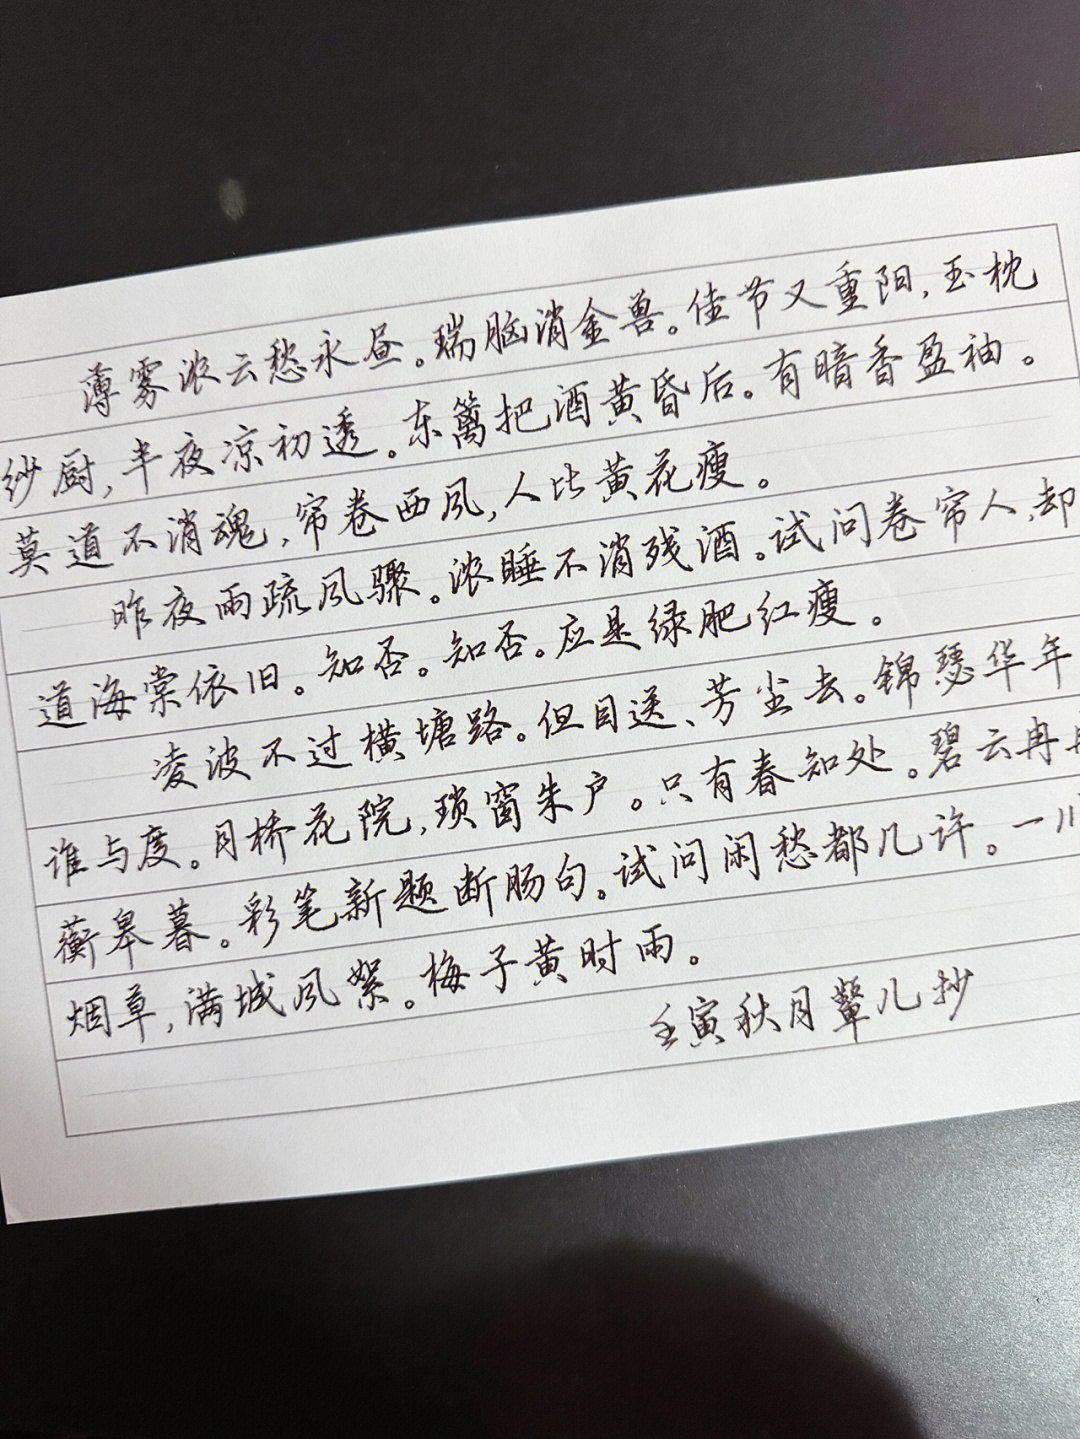 薄雾浓云愁永昼。瑞脑消金兽。佳节又重阳,玉枕
纱厨,半夜凉初透。东篱把酒黄昏后。有暗香盈袖。
莫道不消魂,帘卷西风,人比黄花瘦。
昨夜雨疏风骤。浓睡不消残酒。试问卷帘人,却
道海棠依旧。知否。知否。应是绿肥红瘦。
凌波不过横塘路。但目送、芳尘去。锦瑟华年
谁与度。月桥花院,琐窗朱户。只有春知处。碧云冉冉
蘅皋暮。彩笔新题断肠句。试问闲愁都几许。一川
烟草,满城风絮。梅子黄时雨。
壬寅秋月颦儿抄